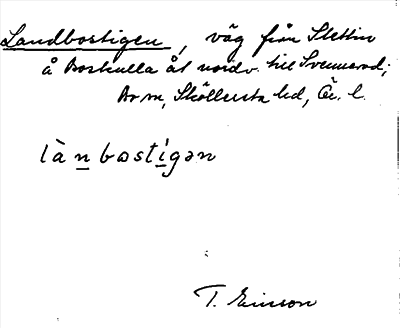 Landbostigen, väg från Slettin
å Boskulla åt nordv. till Svennevad;
Bo sn, Sköllersta hd, Ör. l.
lànbostígan
T. Ericson